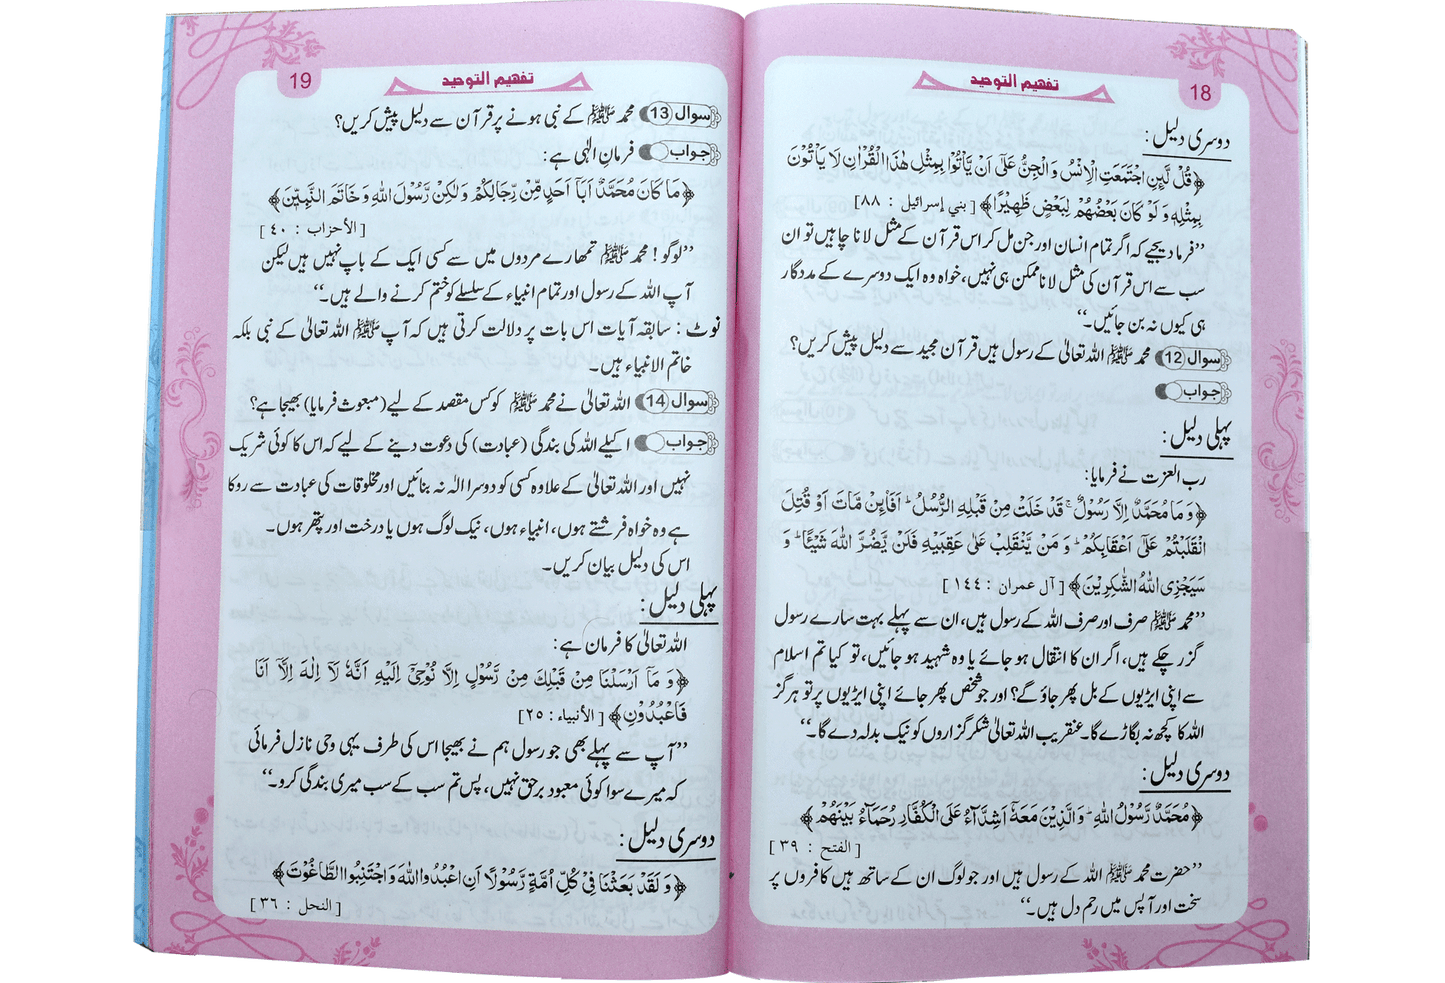 18
تفهيم التوحيد
دوسری دلیل:
﴿قُلْ لَّىِٕنِ اجْتَمَعَتِ الْاِنْسُ وَ الْجِنُّ عَلٰۤى اَنْ یَّاْتُوْا بِمِثْلِ هٰذَا الْقُرْاٰنِ لَا یَاْتُوْنَ
بِمِثْلِهٖ وَ لَوْ كَانَ بَعْضُهُمْ لِبَعْضٍ ظَهِیْرًا﴾ [بني إسرائيل : ۸۸]
”فرما دیجیے کہ اگر تمام انسان اور جن مل کر اس قرآن کے مثل لانا چاہیں تو ان
سب سے اس قرآن کی مثل لانا ممکن ہی نہیں، خواہ وہ ایک دوسرے کے مددگار
ہی کیوں نہ بن جائیں۔“
سوال 12 محمد ﷺ اللہ تعالیٰ کے رسول ہیں قرآن مجید سے دلیل پیش کریں؟
جواب
پہلی دلیل:
رب العزت نے فرمایا:
﴿وَ مَا مُحَمَّدٌ اِلَّا رَسُوْلٌ ۚ قَدْ خَلَتْ مِنْ قَبْلِهِ الرُّسُلُ ؕ اَفَاۡىِٕنْ مَّاتَ اَوْ قُتِلَ
انْقَلَبْتُمْ عَلٰۤى اَعْقَابِكُمْ ؕ وَ مَنْ یَّنْقَلِبْ عَلٰى عَقِبَیْهِ فَلَنْ یَّضُرَّ اللّٰهَ شَیْـًٔا ؕ وَ
سَیَجْزِی اللّٰهُ الشّٰكِرِیْنَ﴾ [آل عمران : ۱٤٤]
”محمد ﷺ صرف اور صرف اللہ کے رسول ہیں، ان سے پہلے بہت سارے رسول
گزر چکے ہیں، اگر ان کا انتقال ہو جائے یا وہ شہید ہو جائیں، تو کیا تم اسلام
سے اپنی ایڑیوں کے بل پھر جاؤ گے؟ اور جو شخص پھر جائے اپنی ایڑیوں پر تو ہرگز
اللہ کا کچھ نہ بگاڑے گا۔ عنقریب اللہ تعالیٰ شکر گزاروں کو نیک بدلہ دے گا۔“
دوسری دلیل:
﴿مُحَمَّدٌ رَّسُوْلُ اللّٰهِ ؕ وَ الَّذِیْنَ مَعَهٗۤ اَشِدَّآءُ عَلَى الْكُفَّارِ رُحَمَآءُ بَیْنَهُمْ﴾
[الفتح : ۳۹]
”حضرت محمد ﷺ اللہ کے رسول ہیں اور جو لوگ ان کے ساتھ ہیں کافروں پر
سخت اور آپس میں رحم دل ہیں۔“
19
تفهيم التوحيد
سوال 13 محمد ﷺ کے نبی ہونے پر قرآن سے دلیل پیش کریں؟
جواب فرمانِ الٰہی ہے:
﴿مَا كَانَ مُحَمَّدٌ اَبَاۤ اَحَدٍ مِّنْ رِّجَالِكُمْ وَ لٰكِنْ رَّسُوْلَ اللّٰهِ وَ خَاتَمَ النَّبِیّٖنَ﴾
[الأحزاب : ٤۰]
”لوگو! محمد ﷺ تمھارے مردوں میں سے کسی ایک کے باپ نہیں ہیں لیکن
آپ اللہ کے رسول اور تمام انبیاء کے سلسلے کو ختم کرنے والے ہیں۔“
نوٹ: سابقہ آیات اس بات پر دلالت کرتی ہیں کہ آپ ﷺ اللہ تعالیٰ کے نبی بلکہ
خاتم الانبیاء ہیں۔
سوال 14 اللہ تعالیٰ نے محمد ﷺ کو کس مقصد کے لیے (مبعوث فرمایا) بھیجا ہے؟
جواب اکیلے اللہ کی بندگی (عبادت) کی دعوت دینے کے لیے کہ اس کا کوئی شریک
نہیں اور اللہ تعالیٰ کے علاوہ کسی کو دوسرا الٰہ نہ بنائیں اور مخلوقات کی عبادت سے روکا
ہے وہ خواہ فرشتے ہوں، انبیاء ہوں، نیک لوگ ہوں یا درخت اور پتھر ہوں۔
اس کی دلیل بیان کریں۔
پہلی دلیل:
اللہ تعالیٰ کا فرمان ہے:
﴿وَ مَاۤ اَرْسَلْنَا مِنْ قَبْلِكَ مِنْ رَّسُوْلٍ اِلَّا نُوْحِیْۤ اِلَیْهِ اَنَّهٗ لَاۤ اِلٰهَ اِلَّاۤ اَنَا
فَاعْبُدُوْنِ﴾ [الأنبياء : ۲٥]
”آپ سے پہلے بھی جو رسول ہم نے بھیجا اس کی طرف یہی وحی نازل فرمائی
کہ میرے سوا کوئی معبود برحق نہیں، پس تم سب کے سب میری بندگی کرو۔“
دوسری دلیل:
﴿وَ لَقَدْ بَعَثْنَا فِیْ كُلِّ اُمَّةٍ رَّسُوْلًا اَنِ اعْبُدُوا اللّٰهَ وَ اجْتَنِبُوا الطَّاغُوْتَ﴾
[النحل : ۳٦]